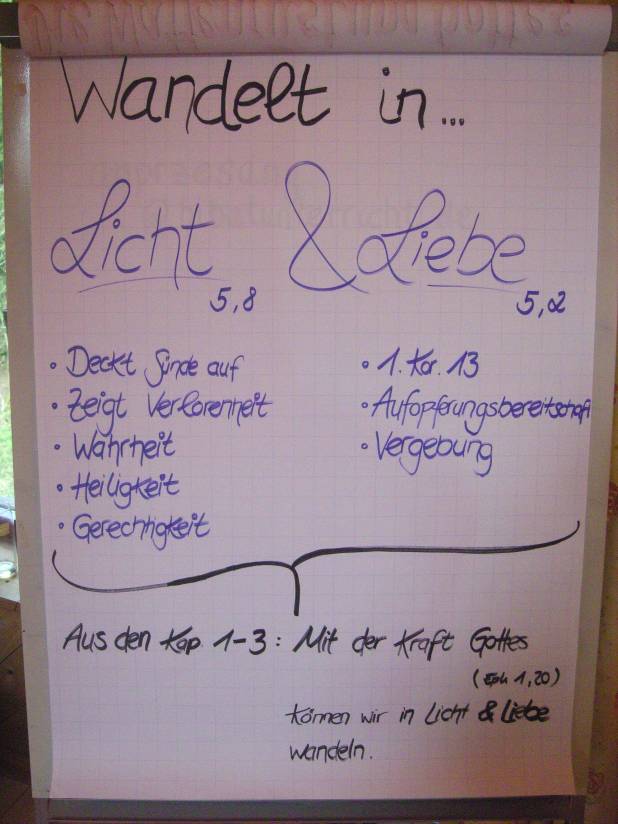 Wandelt in...
Licht & Liebe
5,8
5,2
• Deckt Sünde auf
• Zeigt Verlorenheit
• Wahrheit
• Heiligkeit
• Gerechtigkeit
• 1. Kor. 13
• Aufopferungsbereitschaft
• Vergebung
Aus den Kap 1-3: Mit der Kraft Gottes
(Eph 1,20)
können wir in Licht & Liebe
wandeln.